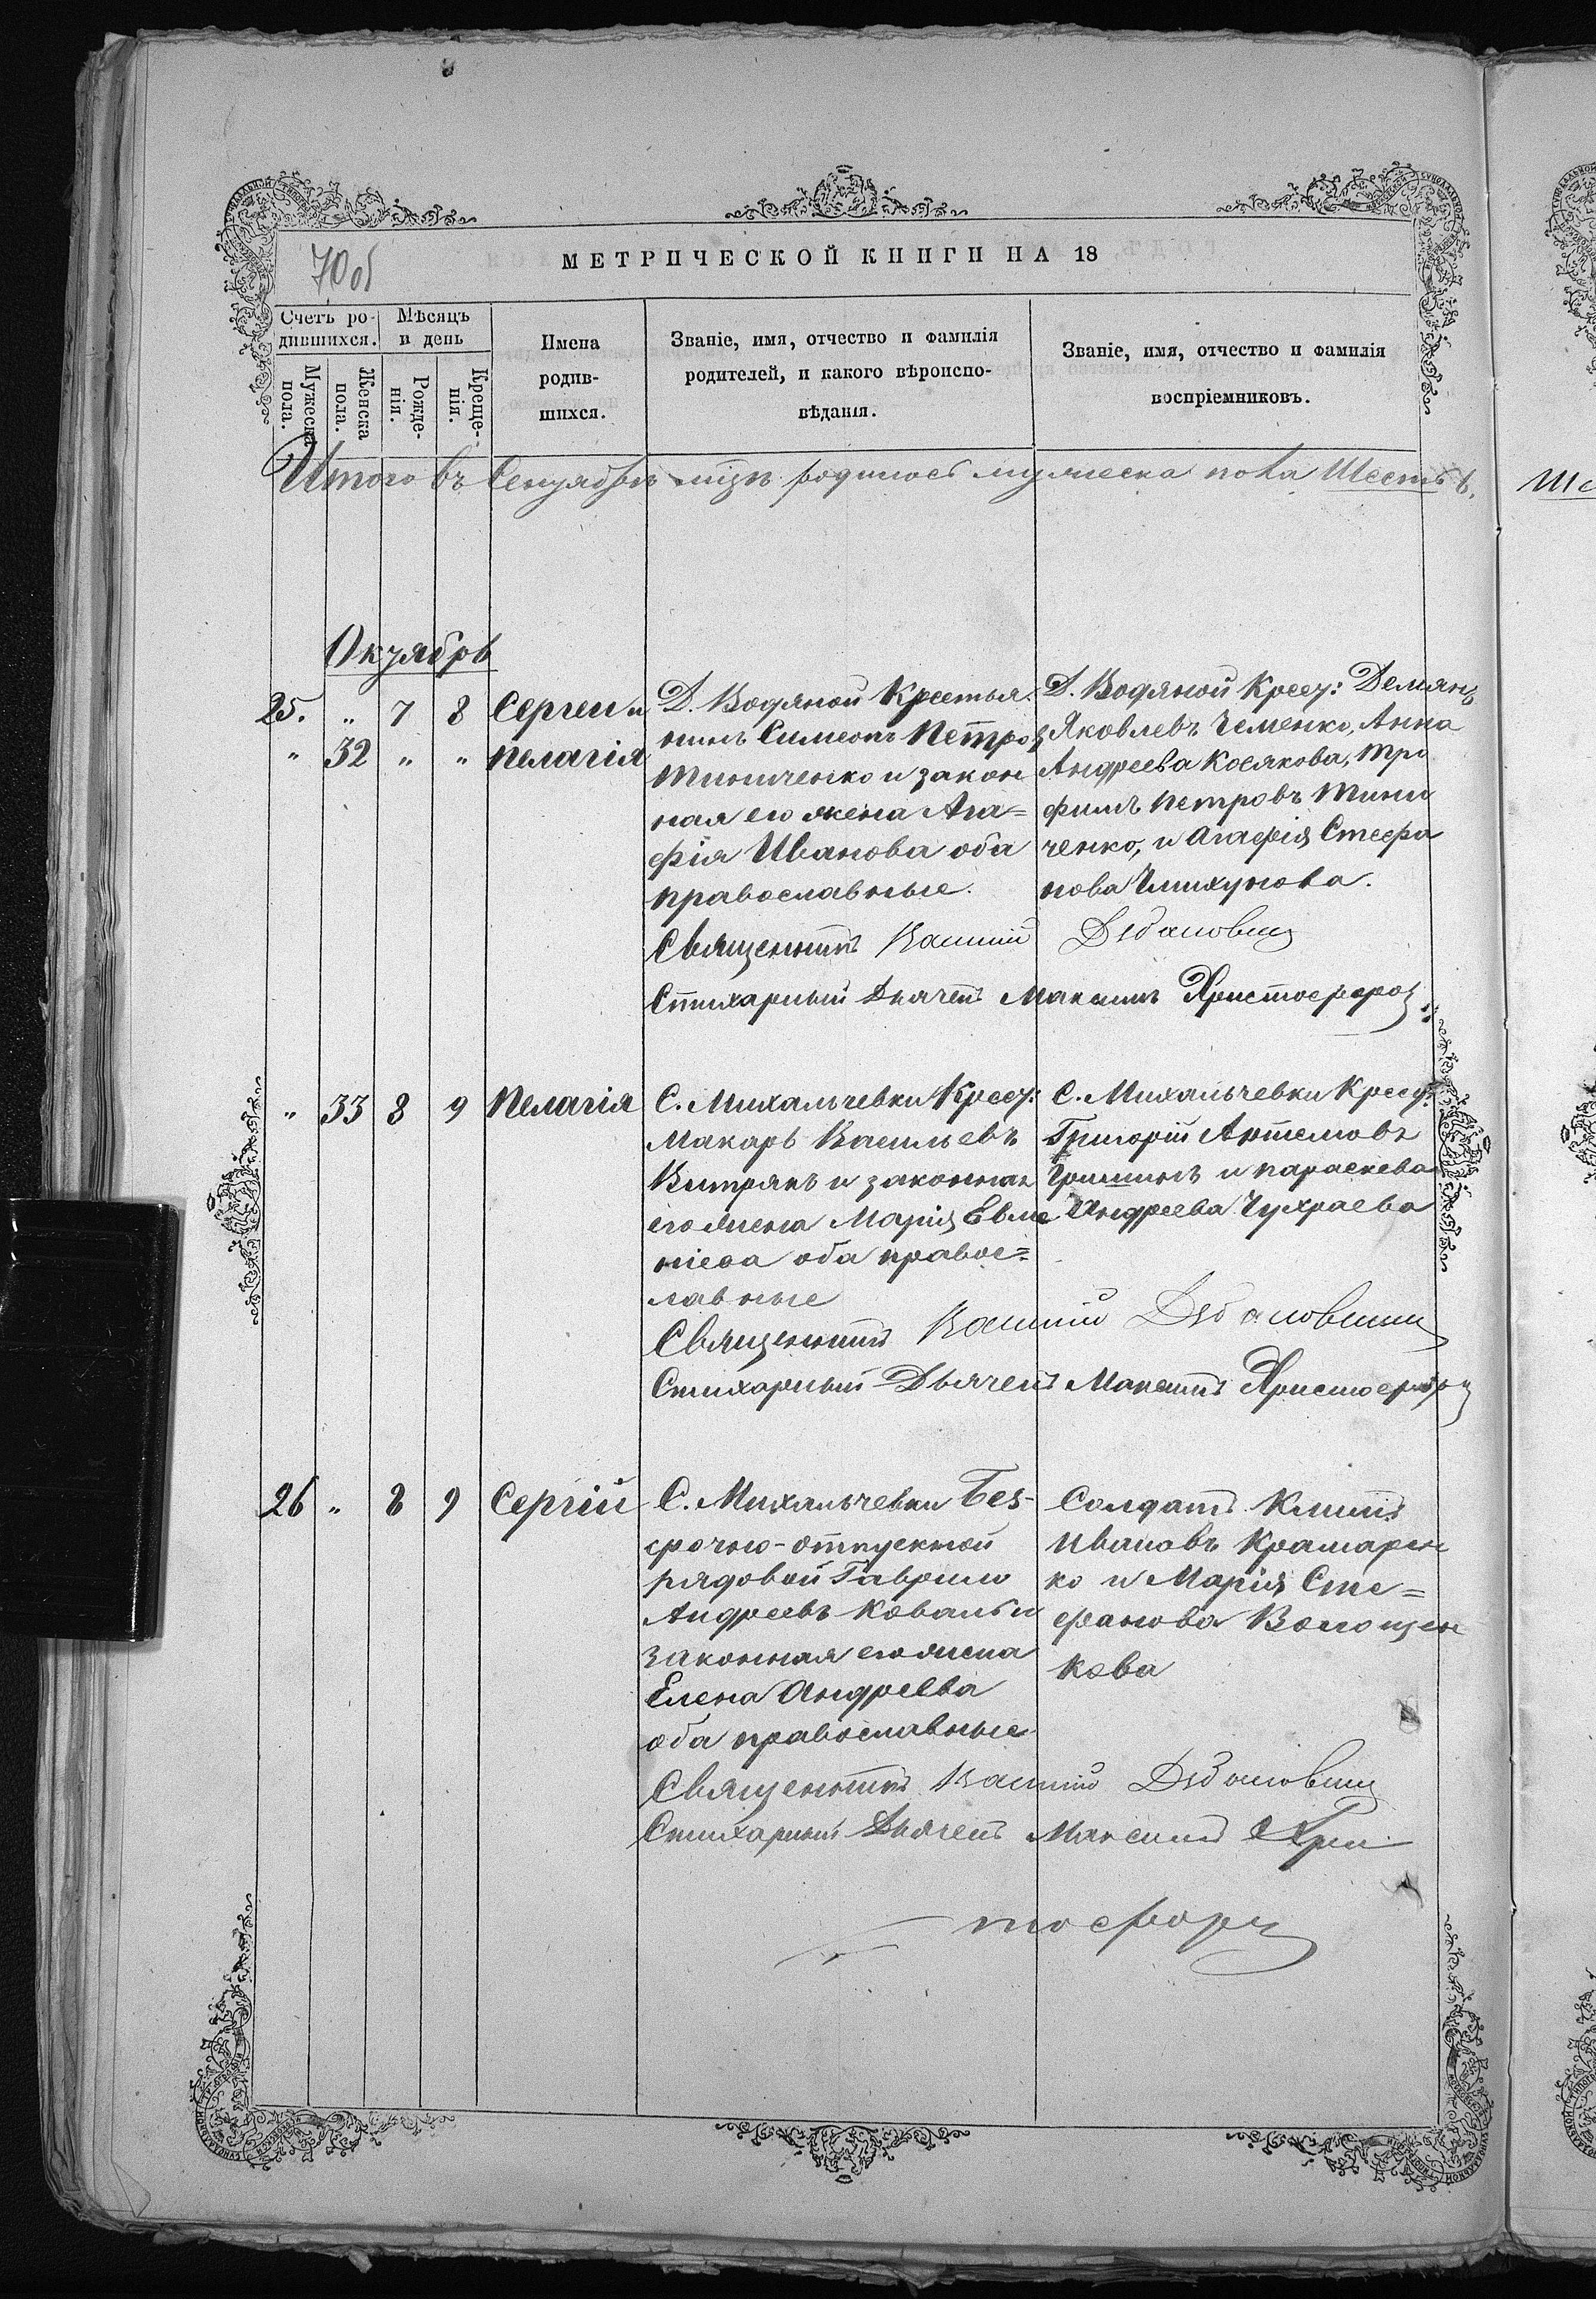 70 об
МЕТРИЧЕСКОЙ КНИГИ НА 18
Счетъ ро-
дившихся.
Мѣсяцъ
и день
Мужеска
пола.
Женска
пола.
Рожде-
нія.
Креще-
нія.
Имена
родив-
шихся.
Званіе, имя, отчество и фамилія
родителей, и какого вѣроиспо-
вѣданія.
Званіе, имя, отчество и фамилія
воспріемниковъ.
Итого въ Сентябрѣ родилось мужеска пола Шесть 6.
Октябрь
25. " 7 8 Сергій и
" 32 " " Пелагія
Д. Водяной Крестья
нинъ Симеонъ Петров
Тимченко и закон
ная его жена Ага=
фія Иванова оба
православные.
Д. Водяной Крест: Демьянъ
Яковлевъ Чеменко, Анна
Андреева Косякова, Тро
фимъ Петровъ Тими
ченко, и Агафія Стефа
нова
Священникъ Василій Дебановичъ
Стихарный Дьячекъ Максимъ Христофоров
" 33 8 9 Пелагія
С. Михальчевки Крест:
Макарь Васильевъ
Витрякъ и законная
его жена Марія Евме
ніева оба правос=
лавные
С. Михальчевки Крест:
Григорій Артемовъ
Гришинъ и Параскева
Андреева Чухраева
Священникъ Василій Дебановичъ
Стихарный Дьячекъ Максимъ Христофоров
26 " 8 9 Сергій
С. Михальчевки Без-
срочно-отпускной
рядовой Гаврило
Андреевъ Коваль и
законная его жена
Елена Андреева
оба православные
Солдатъ Климъ
Ивановъ Крамарен
ко и Марія Сте=
фанова Волощен
кова
Священникъ Василій Дебановичъ
Стихарный Дьячекъ Максимъ Хри
стофоров
Ше